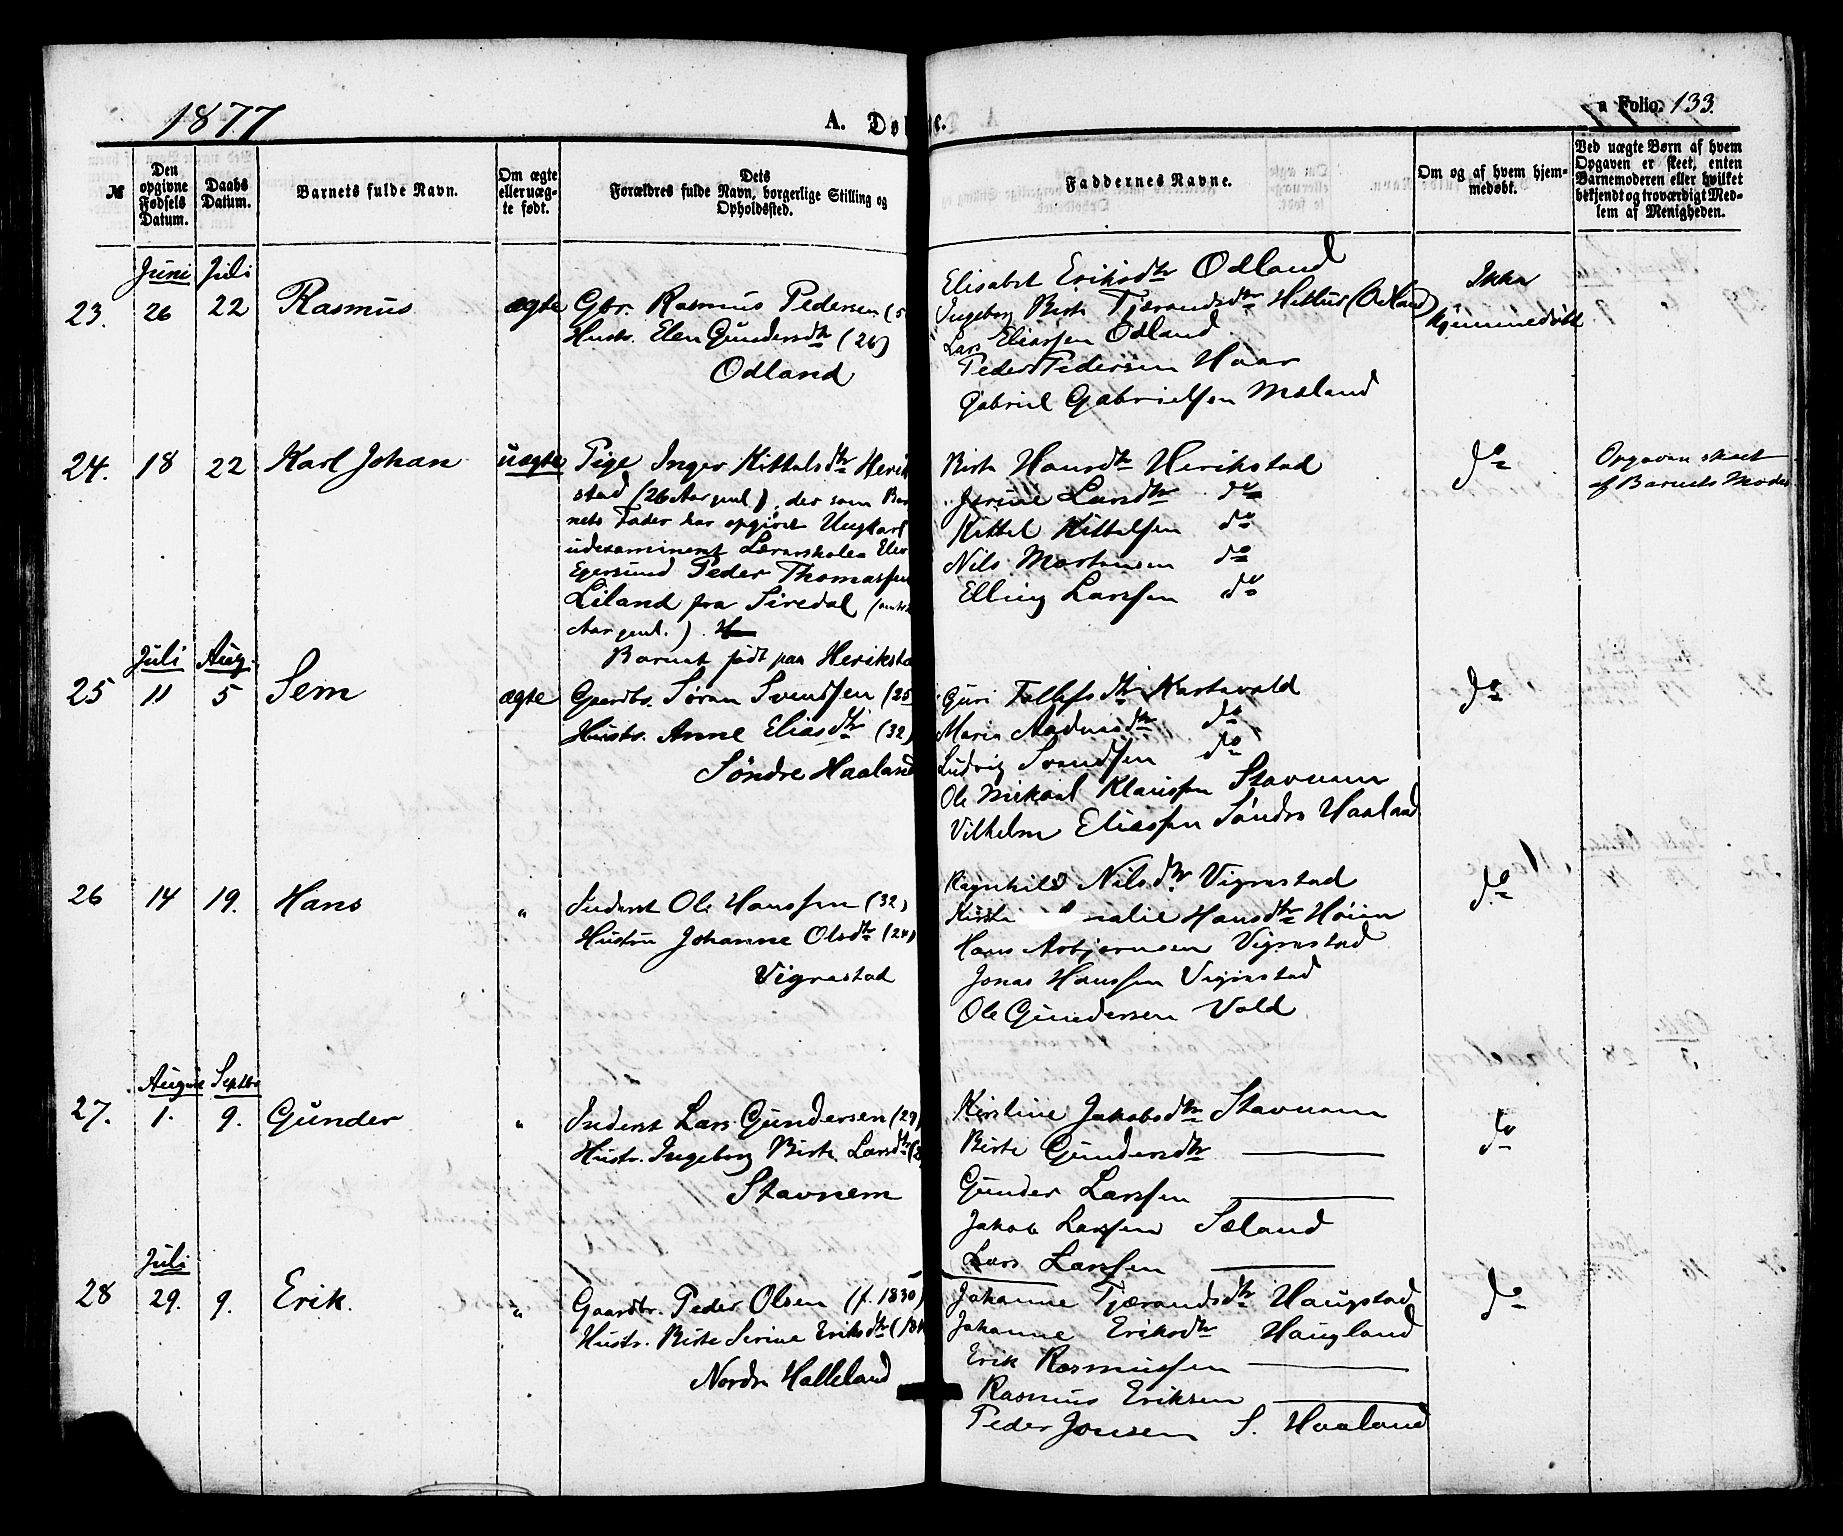 1877
A. Dø
e.
a Folio. 133.
№
Den opgivne Fødsels Datum.
Daabs Datum.
Barnets fulde Navn.
Om ægte eller uæg- te født.
Dets Forældres fulde Navn, borgerlige Stilling og Opholdsted.
Faddernes Navne.
Om og af hvem hjem- medøbt.
Ved uægte Børn af hvem Opgaven er skeet, enten Barnemoderen eller hvilket bekjendt og troværdigt Med- lem af Menigheden.
Juni Juli
23. 26 22 Rasmus ægte
Gbr. Rasmus Pedersen (5
Hustr. Elen Gundersdtr (26)
Odland
Elisabet Eriksdtr Odland
Ingeborg Birte Tjærandsdtr (Odland)
Lars Eliassen Odland
Peder Pedersen Haar
Gabriel Gabrielsen Mæland
Ikke
hjemmedøbt
24. 18 22 Karl Johan uægte
Pige Inger Kittelsdtr Herik
stad (26 Aar gml.), der som Bar
nets Fader har opgivet Ungkarl
udexamineret Lærerskolen Elev
Egersund Peder Thomassen
Liland fra Siredal
Aar gml.).
Barnet født paa Heriksta
Birte Hansdtr Herikstad
Serine Larsdtr do
Kittel Kittelsen do
Nils Mortensen do
Elling Larssen do
do
Opgaven skeet
af Barnets Moder
Juli Aug.
25 11 5 Sem ægte
Gaardbr. Søren Svendsen (25
Hustr. Anne Eliasdtr (32)
Søndre Haaland
Guri Tollefsdtr Kartavold
Maria Aadnesdtr do
Ludvig Svendsen do
Ole Mikael Klaussen Stavnem
Vilhelm Eliassen Søndre Haaland
do
26 14 19. Hans "
Inderst Ole Hanssen (32)
Hustru Johanne Olsdtr (24)
Vigrestad
Ragnhild Nilsdtr Vigrestad
Hansdtr Høien
Hans Asbjørnsen Vigrestad
Jonas Hanssen Vigrestad
Ole Gundersen Vold
do
August Septbr
27. 1. 9. Gunder "
Inderst Lars Gundersen (29)
Hustr. Ingeborg Birte Larsdtr (2
Stavnem
Kirstine Jakobsdtr Stavnem
Birte Gundersdtr —
Gunder Larssen —
Jakob Larssen Sæland
Lars Larssen —
do
Juli
28 29. 9. Erik. "
Gaardbr. Peder Olsen (f. 1830)
Hustr. Birte Serine Eriksdtr (184
Nordre Halleland
Johanne Tjærandsdtr Haugstad
Johanne Eriksdtr Haugland
Erik Rasmussen —
Rasmus Eriksen —
Peder Jonsen S. Haaland
do